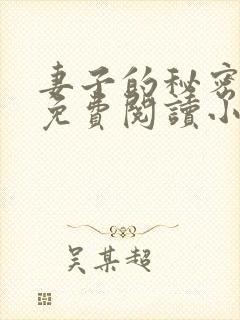 妻子的秘密
免費閱讀小
吴某超